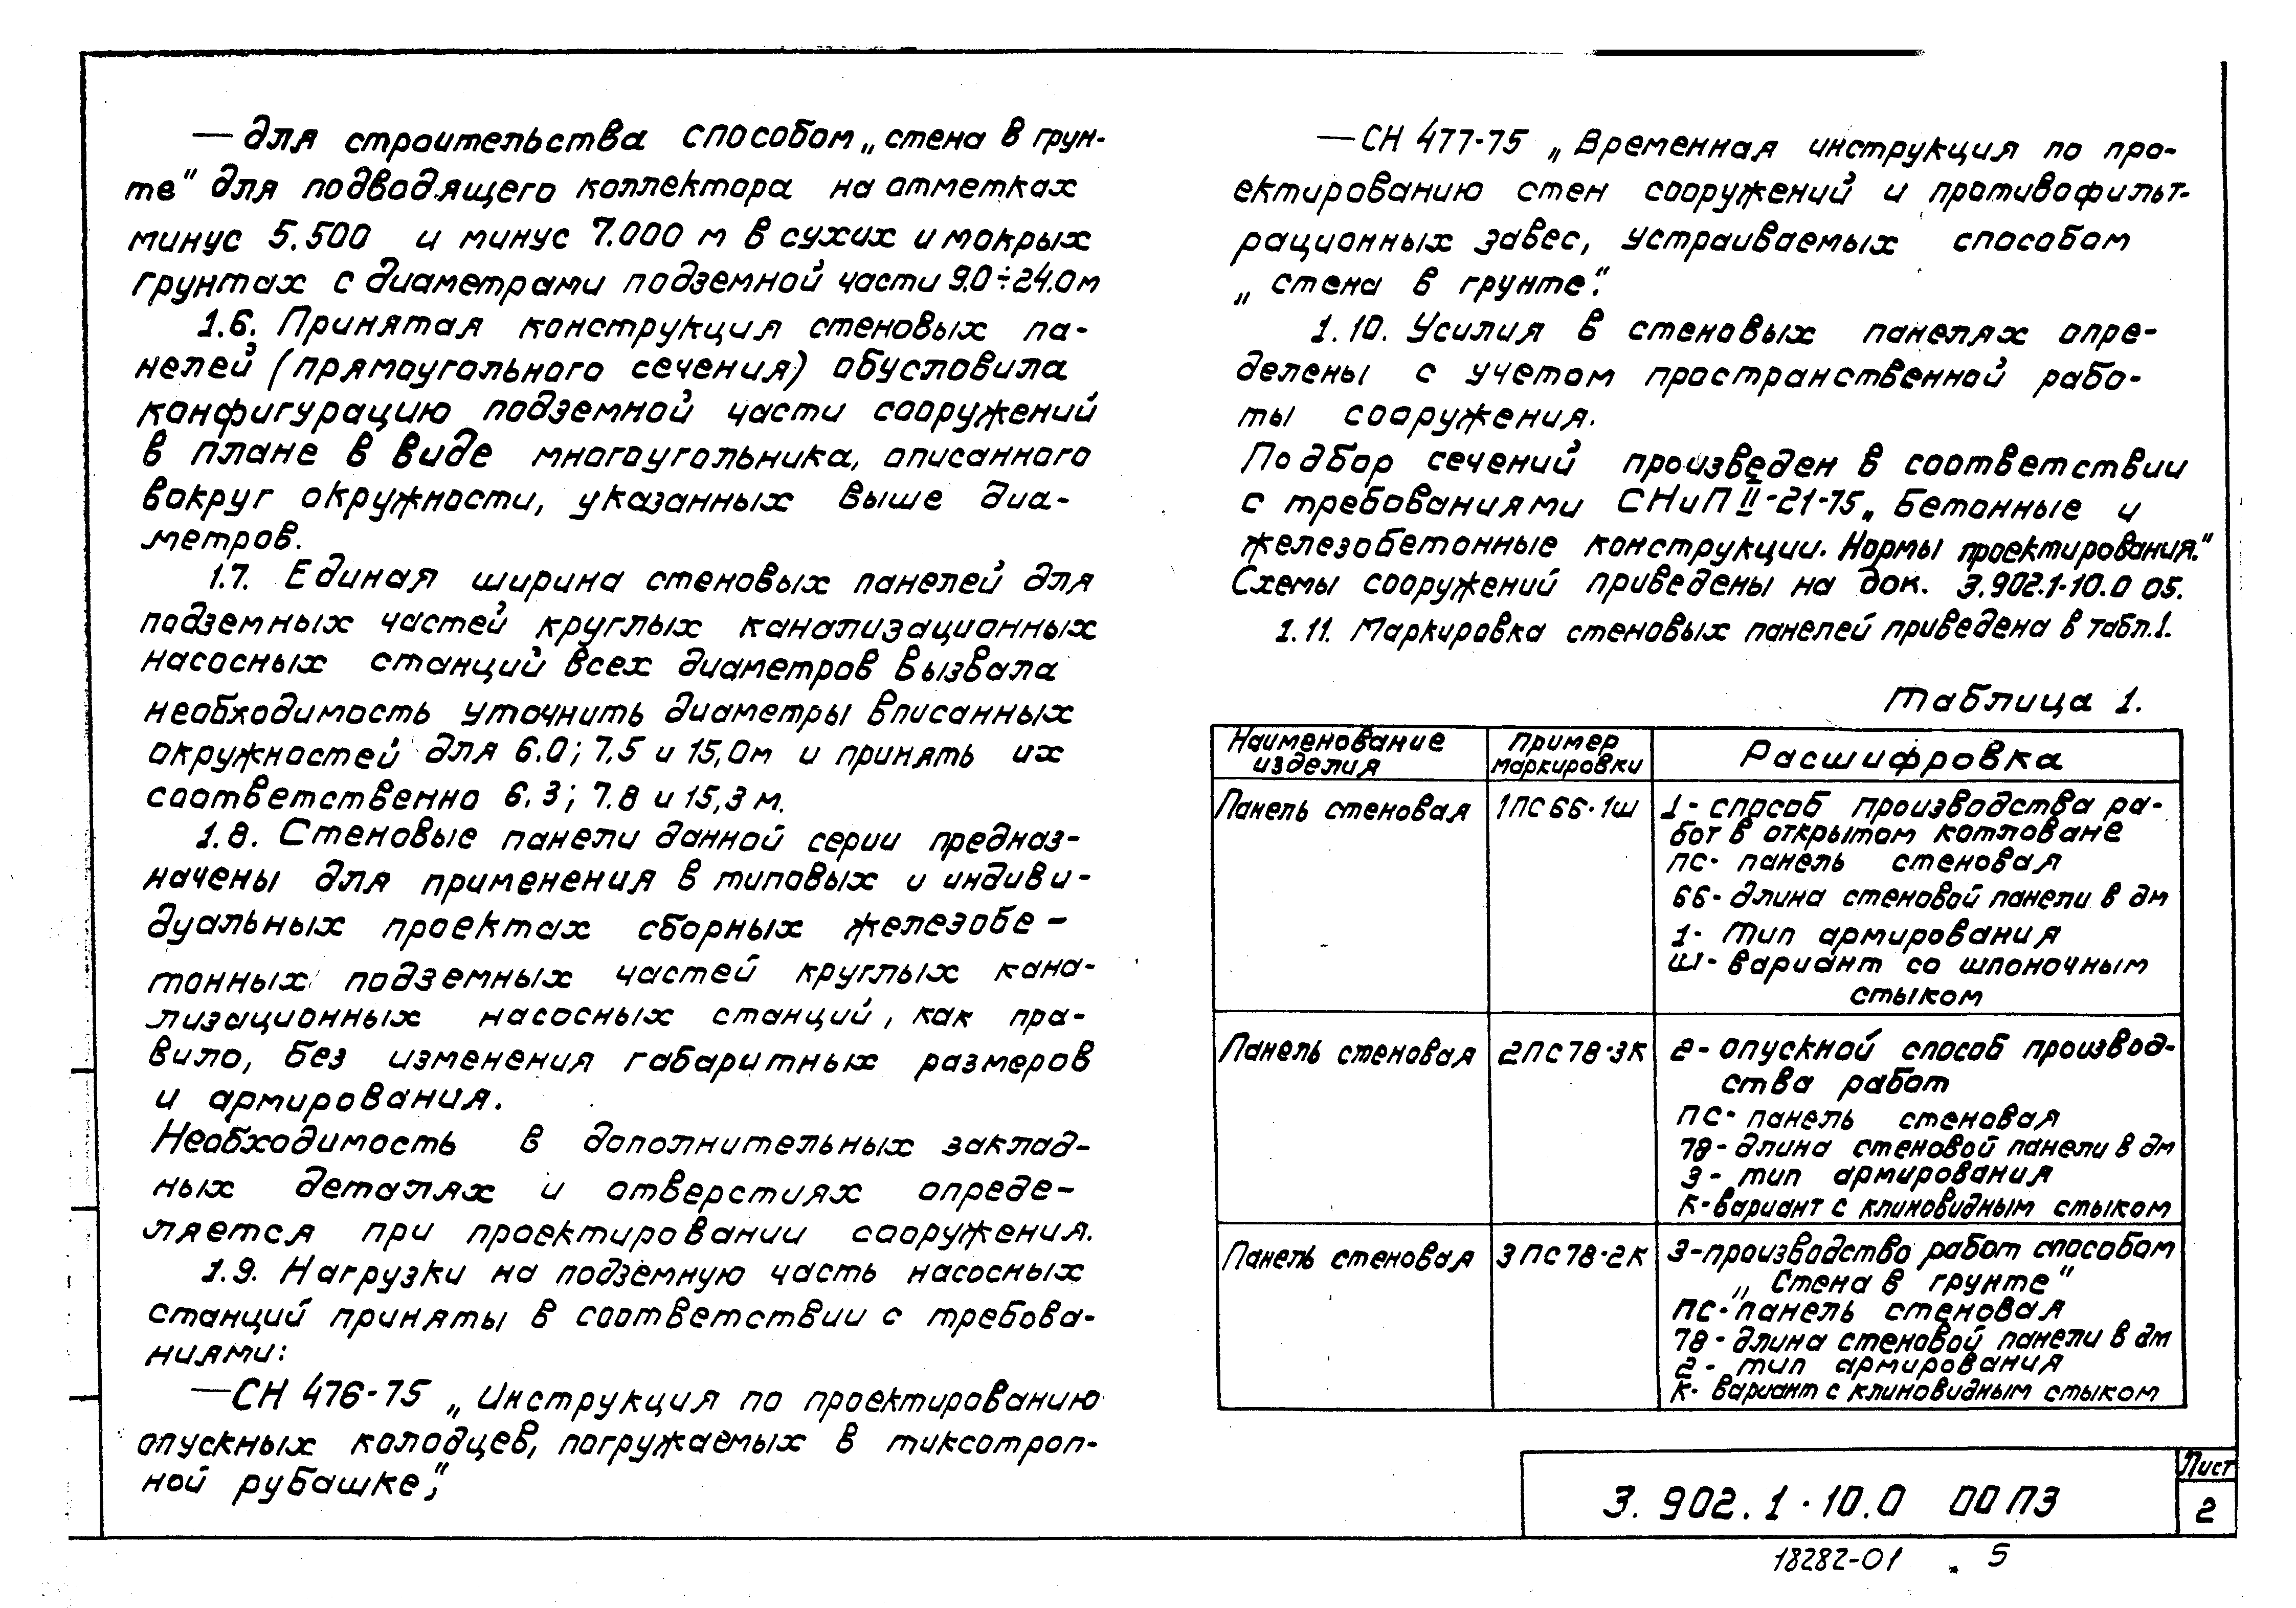 — для строительства способом „стена в грун-
те" для подводящего коллектора на отметках
минус 5.500 и минус 7.000 м в сухих и мокрых
грунтах с диаметрами подземной части 9.0÷24.0м
1.6. Принятая конструкция стеновых па-
нелей (прямоугольного сечения) обусловила
конфигурацию подземной части сооружений
в плане в виде многоугольника, описанного
вокруг окружности, указанных выше диа-
метров.
1.7. Единая ширина стеновых панелей для
подземных частей круглых канализационных
насосных станций всех диаметров вызвала
необходимость уточнить диаметры вписанных
окружностей для 6.0; 7.5 и 15,0м и принять их
соответственно 6.3; 7.8 и 15,3 м.
1.8. Стеновые панели данной серии предназ-
начены для применения в типовых и индиви-
дуальных проектах сборных железобе-
тонных подземных частей круглых кана-
лизационных насосных станций, как пра-
вило, без изменения габаритных размеров
и армирования.
Необходимость в дополнительных заклад-
ных деталях и отверстиях опреде-
ляется при проектировании сооружения.
1.9. Нагрузки на подземную часть насосных
станций приняты в соответствии с требова-
ниями:
— СН 476-75 „Инструкция по проектированию
опускных колодцев, погружаемых в тиксотроп-
ной рубашке",
— СН 477-75 „Временная инструкция по про-
ектированию стен сооружений и противофильт-
рационных завес, устраиваемых способом
„стена в грунте".
1.10. Усилия в стеновых панелях опре-
делены с учетом пространственной рабо-
ты сооружения.
Подбор сечений произведен в соответствии
с требованиями СНиП II-21-75 „Бетонные и
железобетонные конструкции. Нормы проектирования."
Схемы сооружений приведены на док. 3.902.1-10.0 05.
1.11. Маркировка стеновых панелей приведена в табл.1.
Таблица 1.
Наименование изделия
Пример маркировки
Расшифровка
Панель стеновая
1ПС66-1ш
1- способ производства ра-
бот в открытом котловане
пс- панель стеновая
66- длина стеновой панели в дм
1- тип армирования
ш- вариант со шпоночным
стыком
Панель стеновая
2ПС78-3К
2- опускной способ производ-
ства работ
ПС- панель стеновая
78- длина стеновой панели в дм
3- тип армирования
К- вариант с клиновидным стыком
Панель стеновая
3ПС78-2К
3- производство работ способом
„Стена в грунте"
ПС- панель стеновая
78- длина стеновой панели в дм
2- тип армирования
К- вариант с клиновидным стыком
3.902.1-10.0 00ПЗ
Лист
2
18282-01 5